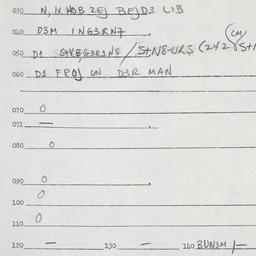 030 N, IX HOB ZEJ BEJD3 LIB
040 D3M ING3RN7
050 D1 S+VEG3R1NS / S+N8-URS (2x2 CM
060 D1 FROJ UN D3R MAN
070 0
072 —
080 0
090 0
0
100
110 0
120 — 130 — 140 BUN3M /—